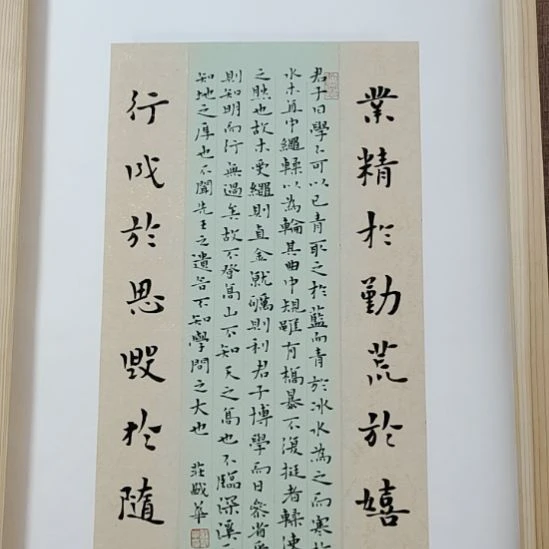 業精於勤荒於嬉
君子曰學不可以已青取之於藍而青於冰水為之而寒於
水木直中繩輮以為輪其曲中規雖有槁暴不復挺者輮使
之然也故木受繩則直金就礪則利君子博學而日參省乎
則知明而行無過矣故不登高山不知天之高也不臨深溪不
知地之厚也不聞先王之遺言不知學問之大也 莊
行成於思毀於隨